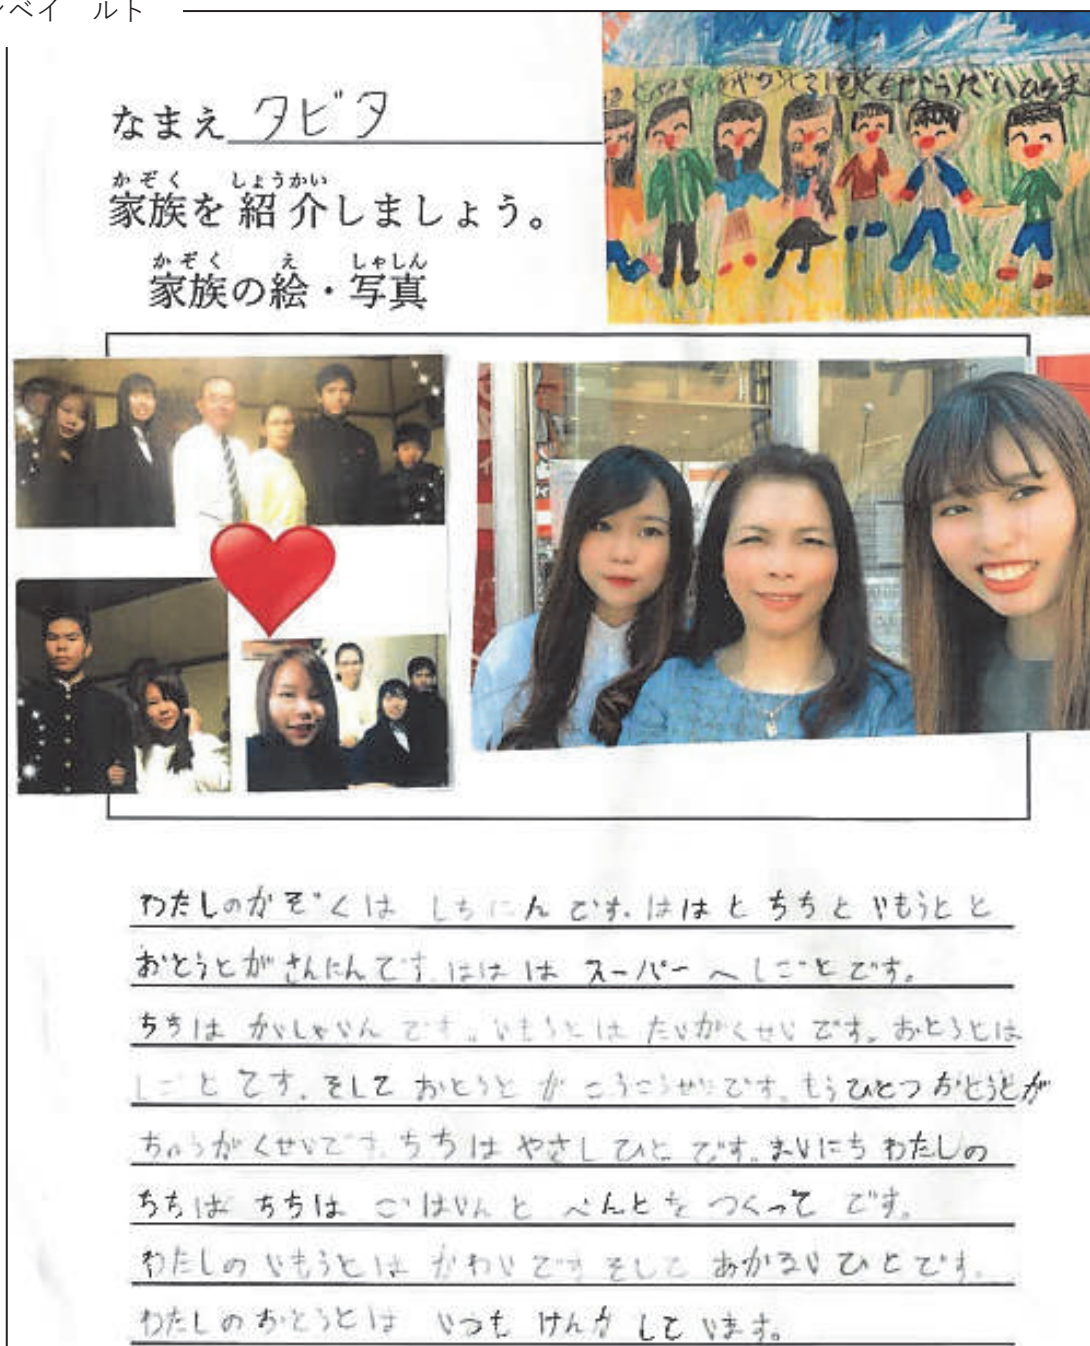 ベイ ルト
なまえ タビタ
かぞく しょうかい
家族を紹介しましょう。
かぞく え しゃしん
家族の絵・写真
わたしのかぞくは しちにんです。ははと ちちと いもうとと
おとうとが さんにんです。ははは スーパーへ しごとです。
ちちは かいしゃいんです。いもうとは たいがくせいです。おとうとは
しごとてす。そして おとうとが こうこうせいです。もうひとつ おとうとが
ちゅうがくせいです。ちちは やさしひとです。まいにち わたしの
ちちは ちちは ごはいんと べんとを つくってです。
わたしの いもうとは かわいです そして あかるいひとです。
わたしのおとうとは いつも けんかしています。